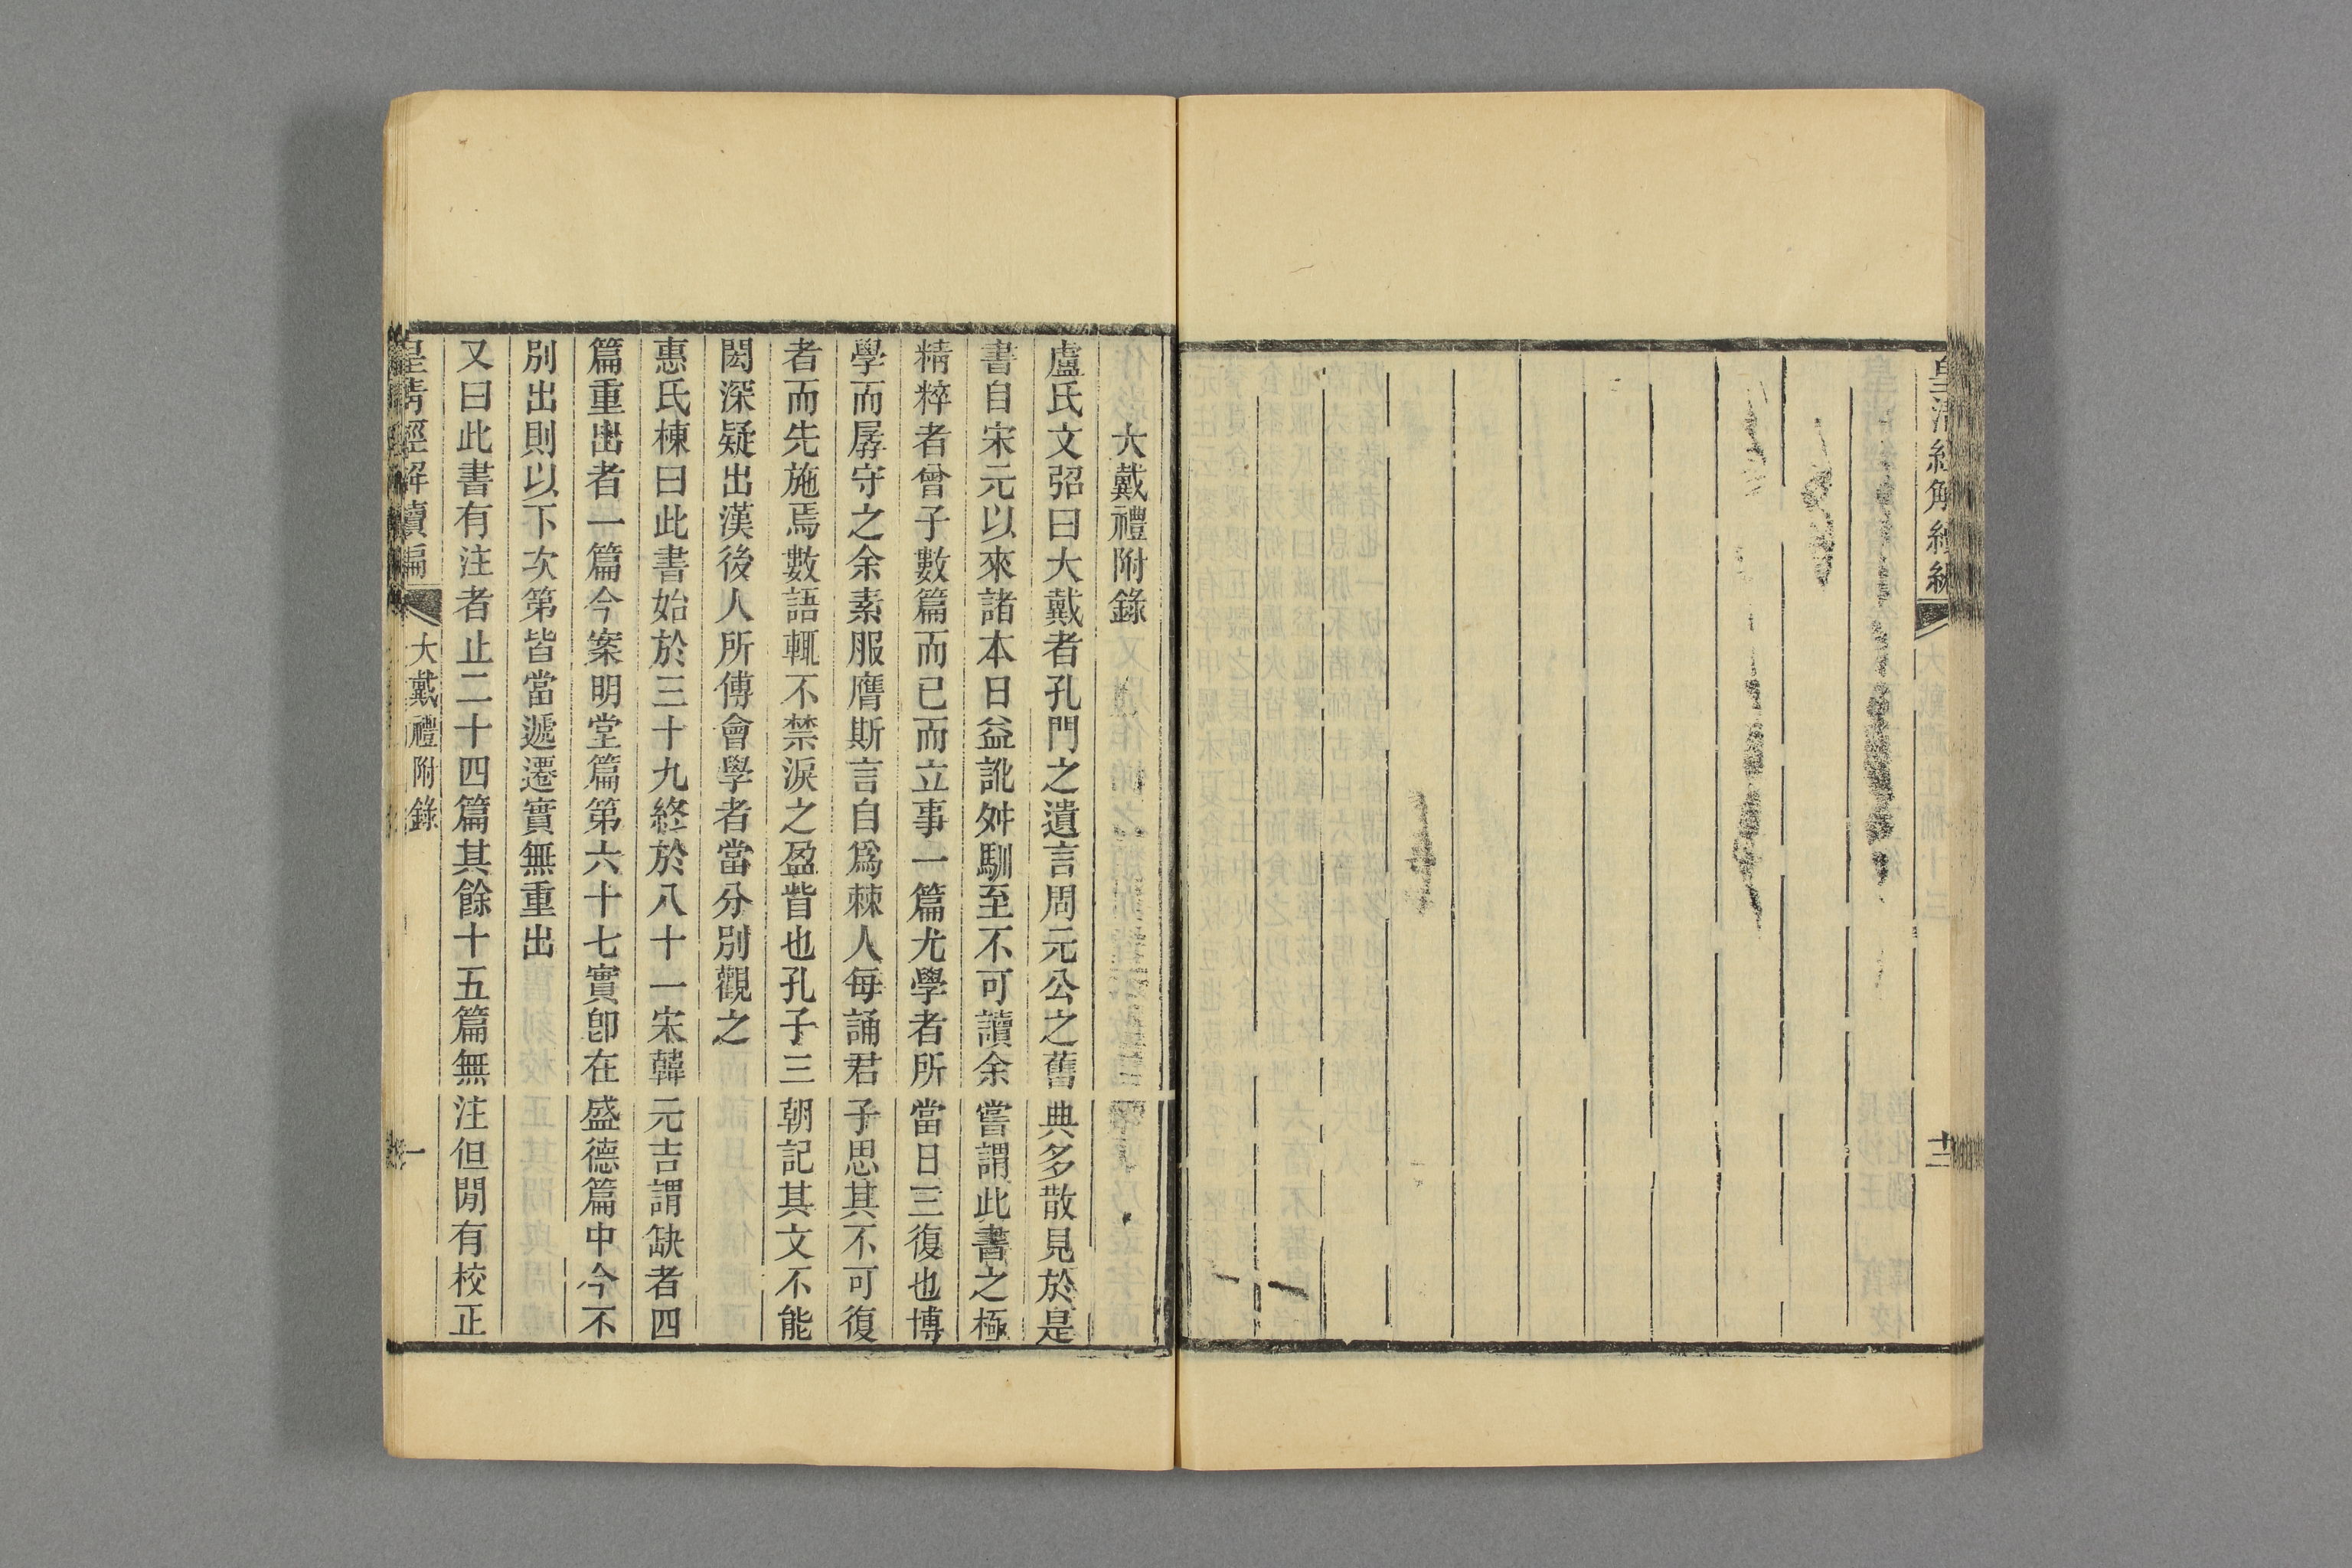 皇清經解續編
十三
大戴禮附錄
盧氏文弨曰大戴者孔門之遺言周元公之舊典多散見於是
書自宋元以來諸本日益訛舛馴至不可讀余嘗謂此書之極
精粹者曾子數篇而已而立事一篇尤學者所當日三復也博
學而孱守之余素服膺斯言自爲棘人每誦君子思其不可復
者而先施焉數語輒不禁淚之盈眥也孔子三朝記其文不能
閎深疑出漢後人所傅會學者當分別觀之
惠氏棟曰此書始於三十九終於八十一宋韓元吉謂缺者四
篇重出者一篇今案明堂篇第六十七實卽在盛德篇中今不
別出則以下次第皆當遞遷實無重出
又曰此書有注者止二十四篇其餘十五篇無注但閒有校正
皇清經解續編
大戴禮附錄
一